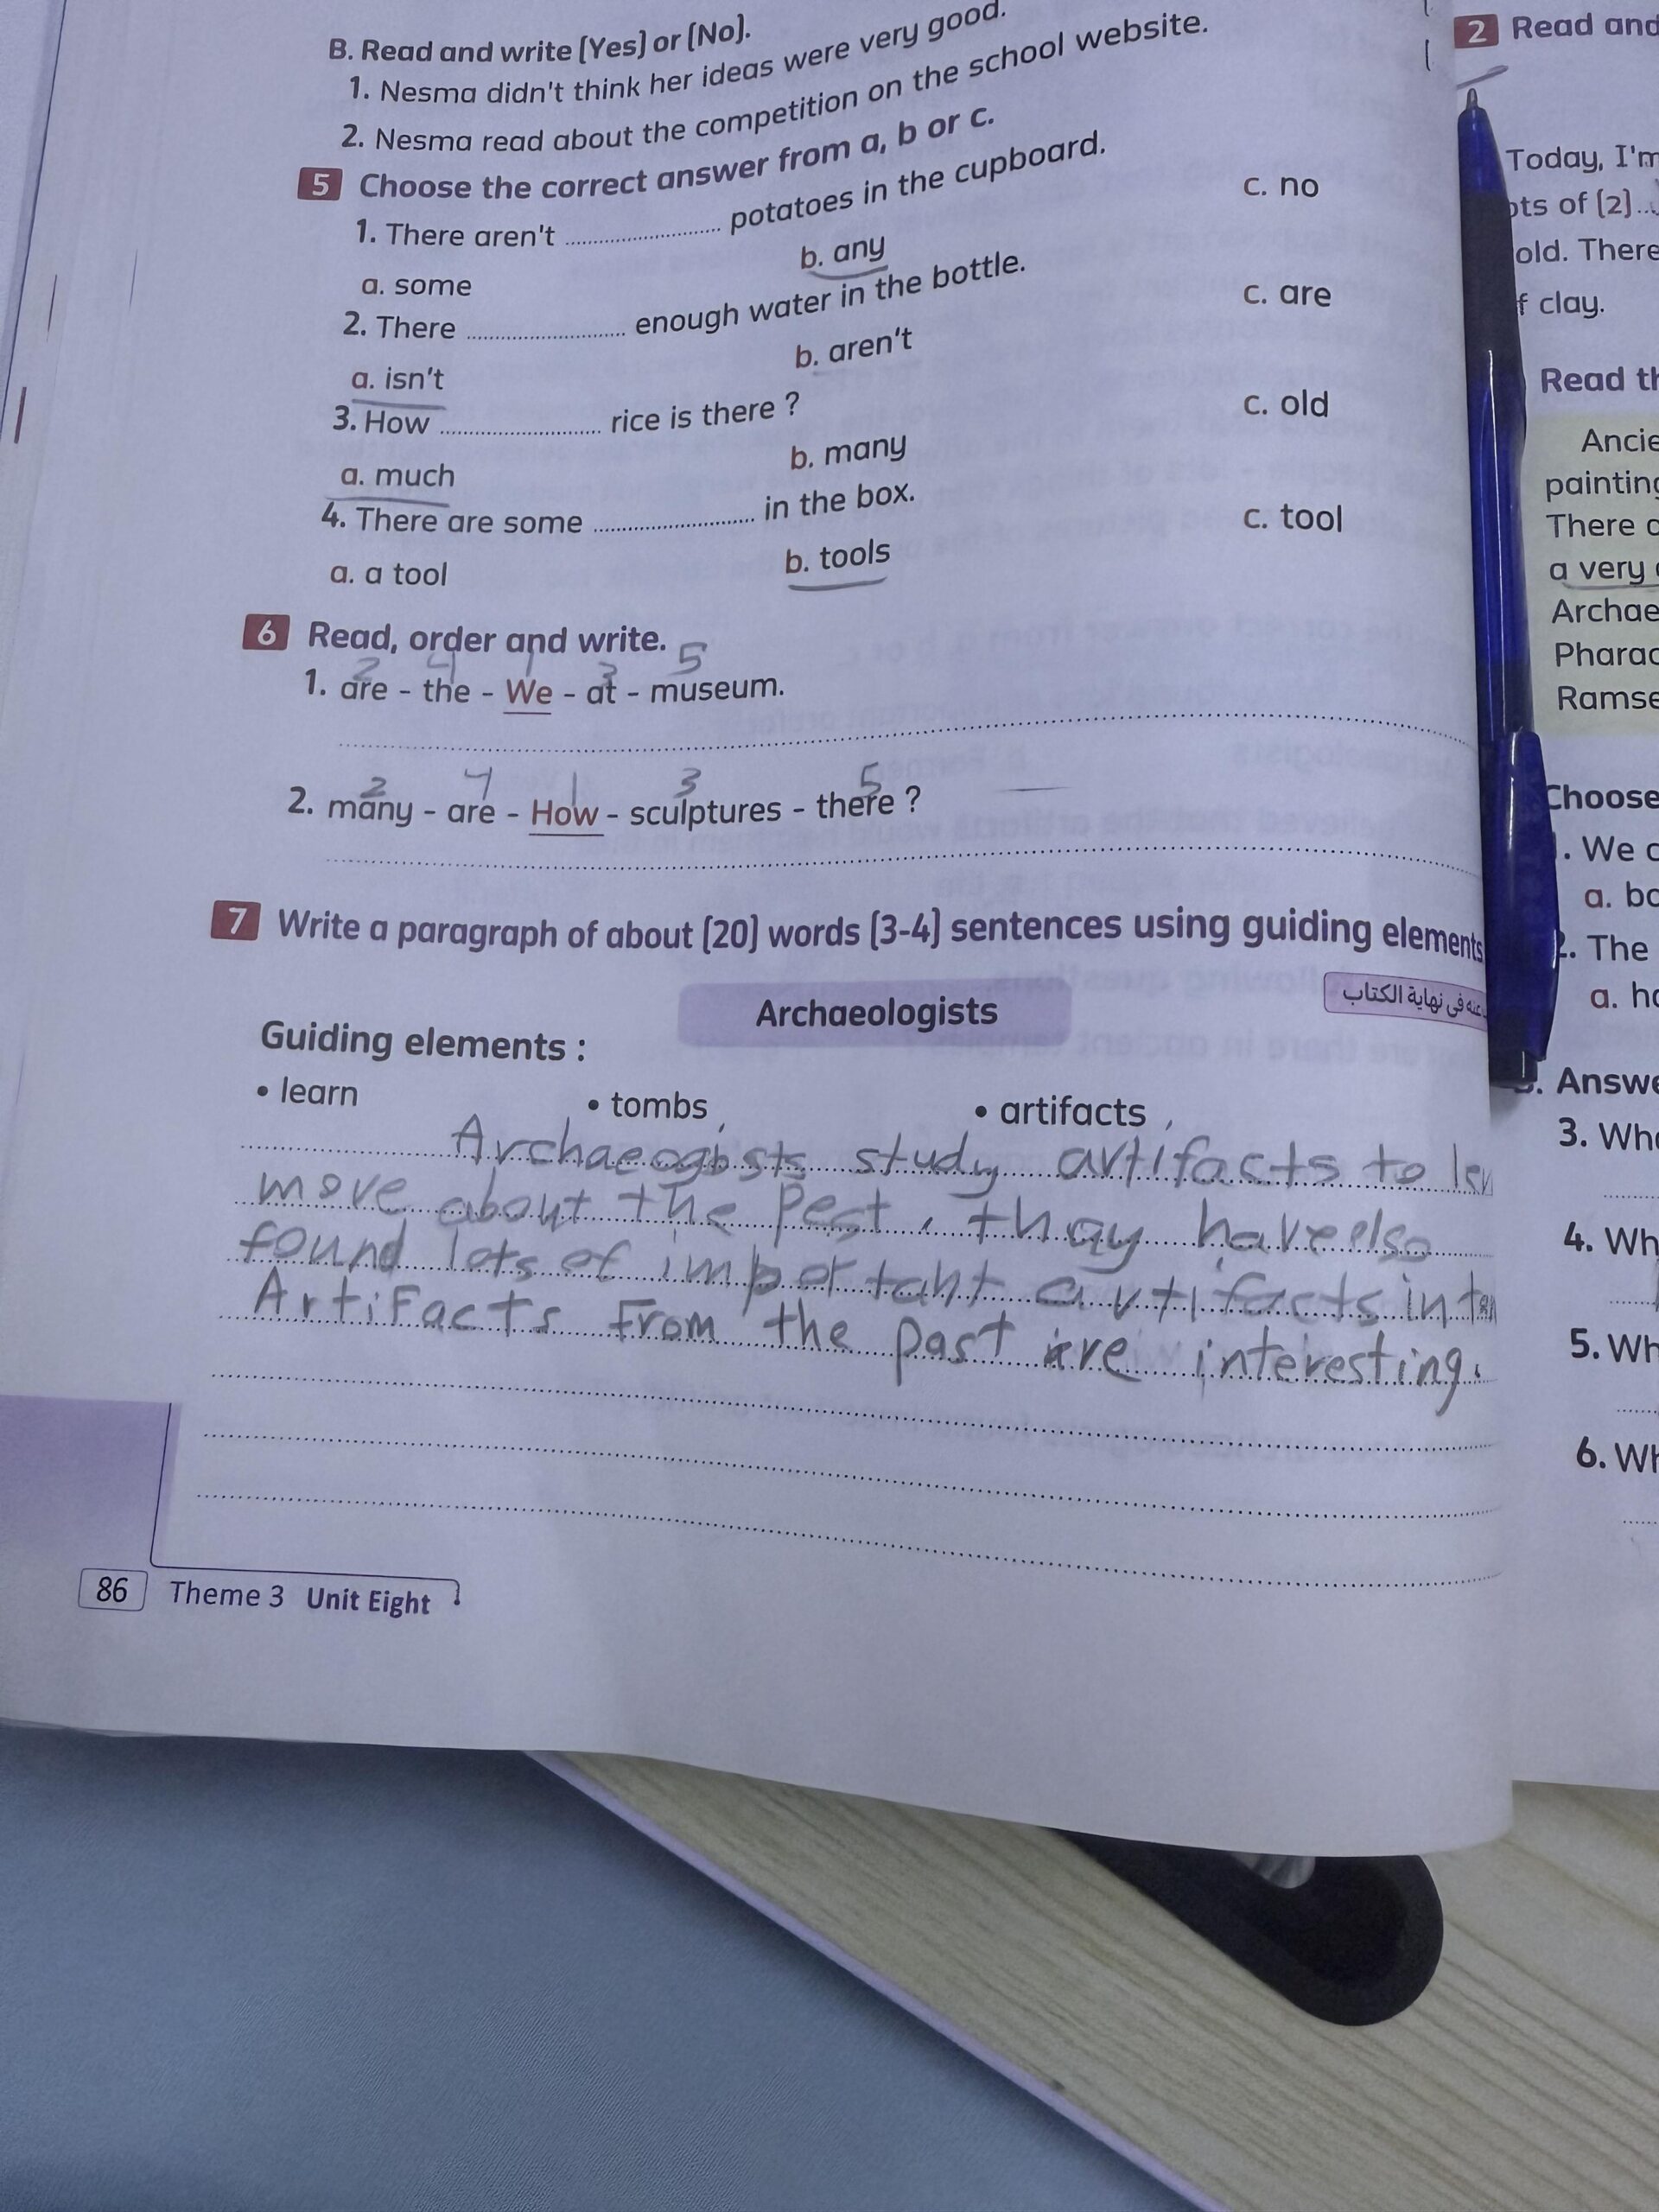 B. Read and write [Yes] or [No].
1. Nesma didn't think her ideas were very good.
2. Nesma read about the competition on the school website.
5 Choose the correct answer from a, b or c.
1. There aren't .................... potatoes in the cupboard.
a. some b. any c. no
2. There .................... enough water in the bottle.
a. isn't b. aren't c. are
3. How .................... rice is there ?
a. much b. many c. old
4. There are some .................... in the box.
a. a tool b. tools c. tool
6 Read, order and write.
2 4 1 3 5
1. are - the - We - at - museum.
2 4 1 3 5
2. many - are - How - sculptures - there ?
7 Write a paragraph of about [20] words [3-4] sentences using guiding elements
فى نهاية الكتاب
Archaeologists
Guiding elements :
• learn • tombs • artifacts
study artifacts to
more about the Pest. thay have elso
found lots of important artifacts in
Artifacts From the past are interesting.
86 Theme 3 Unit Eight
2 Read and
Today, I'm
of [2]
old. There
clay.
Read
painting
There
a very
We
a.
The
a.
3.
4.
5.
6.